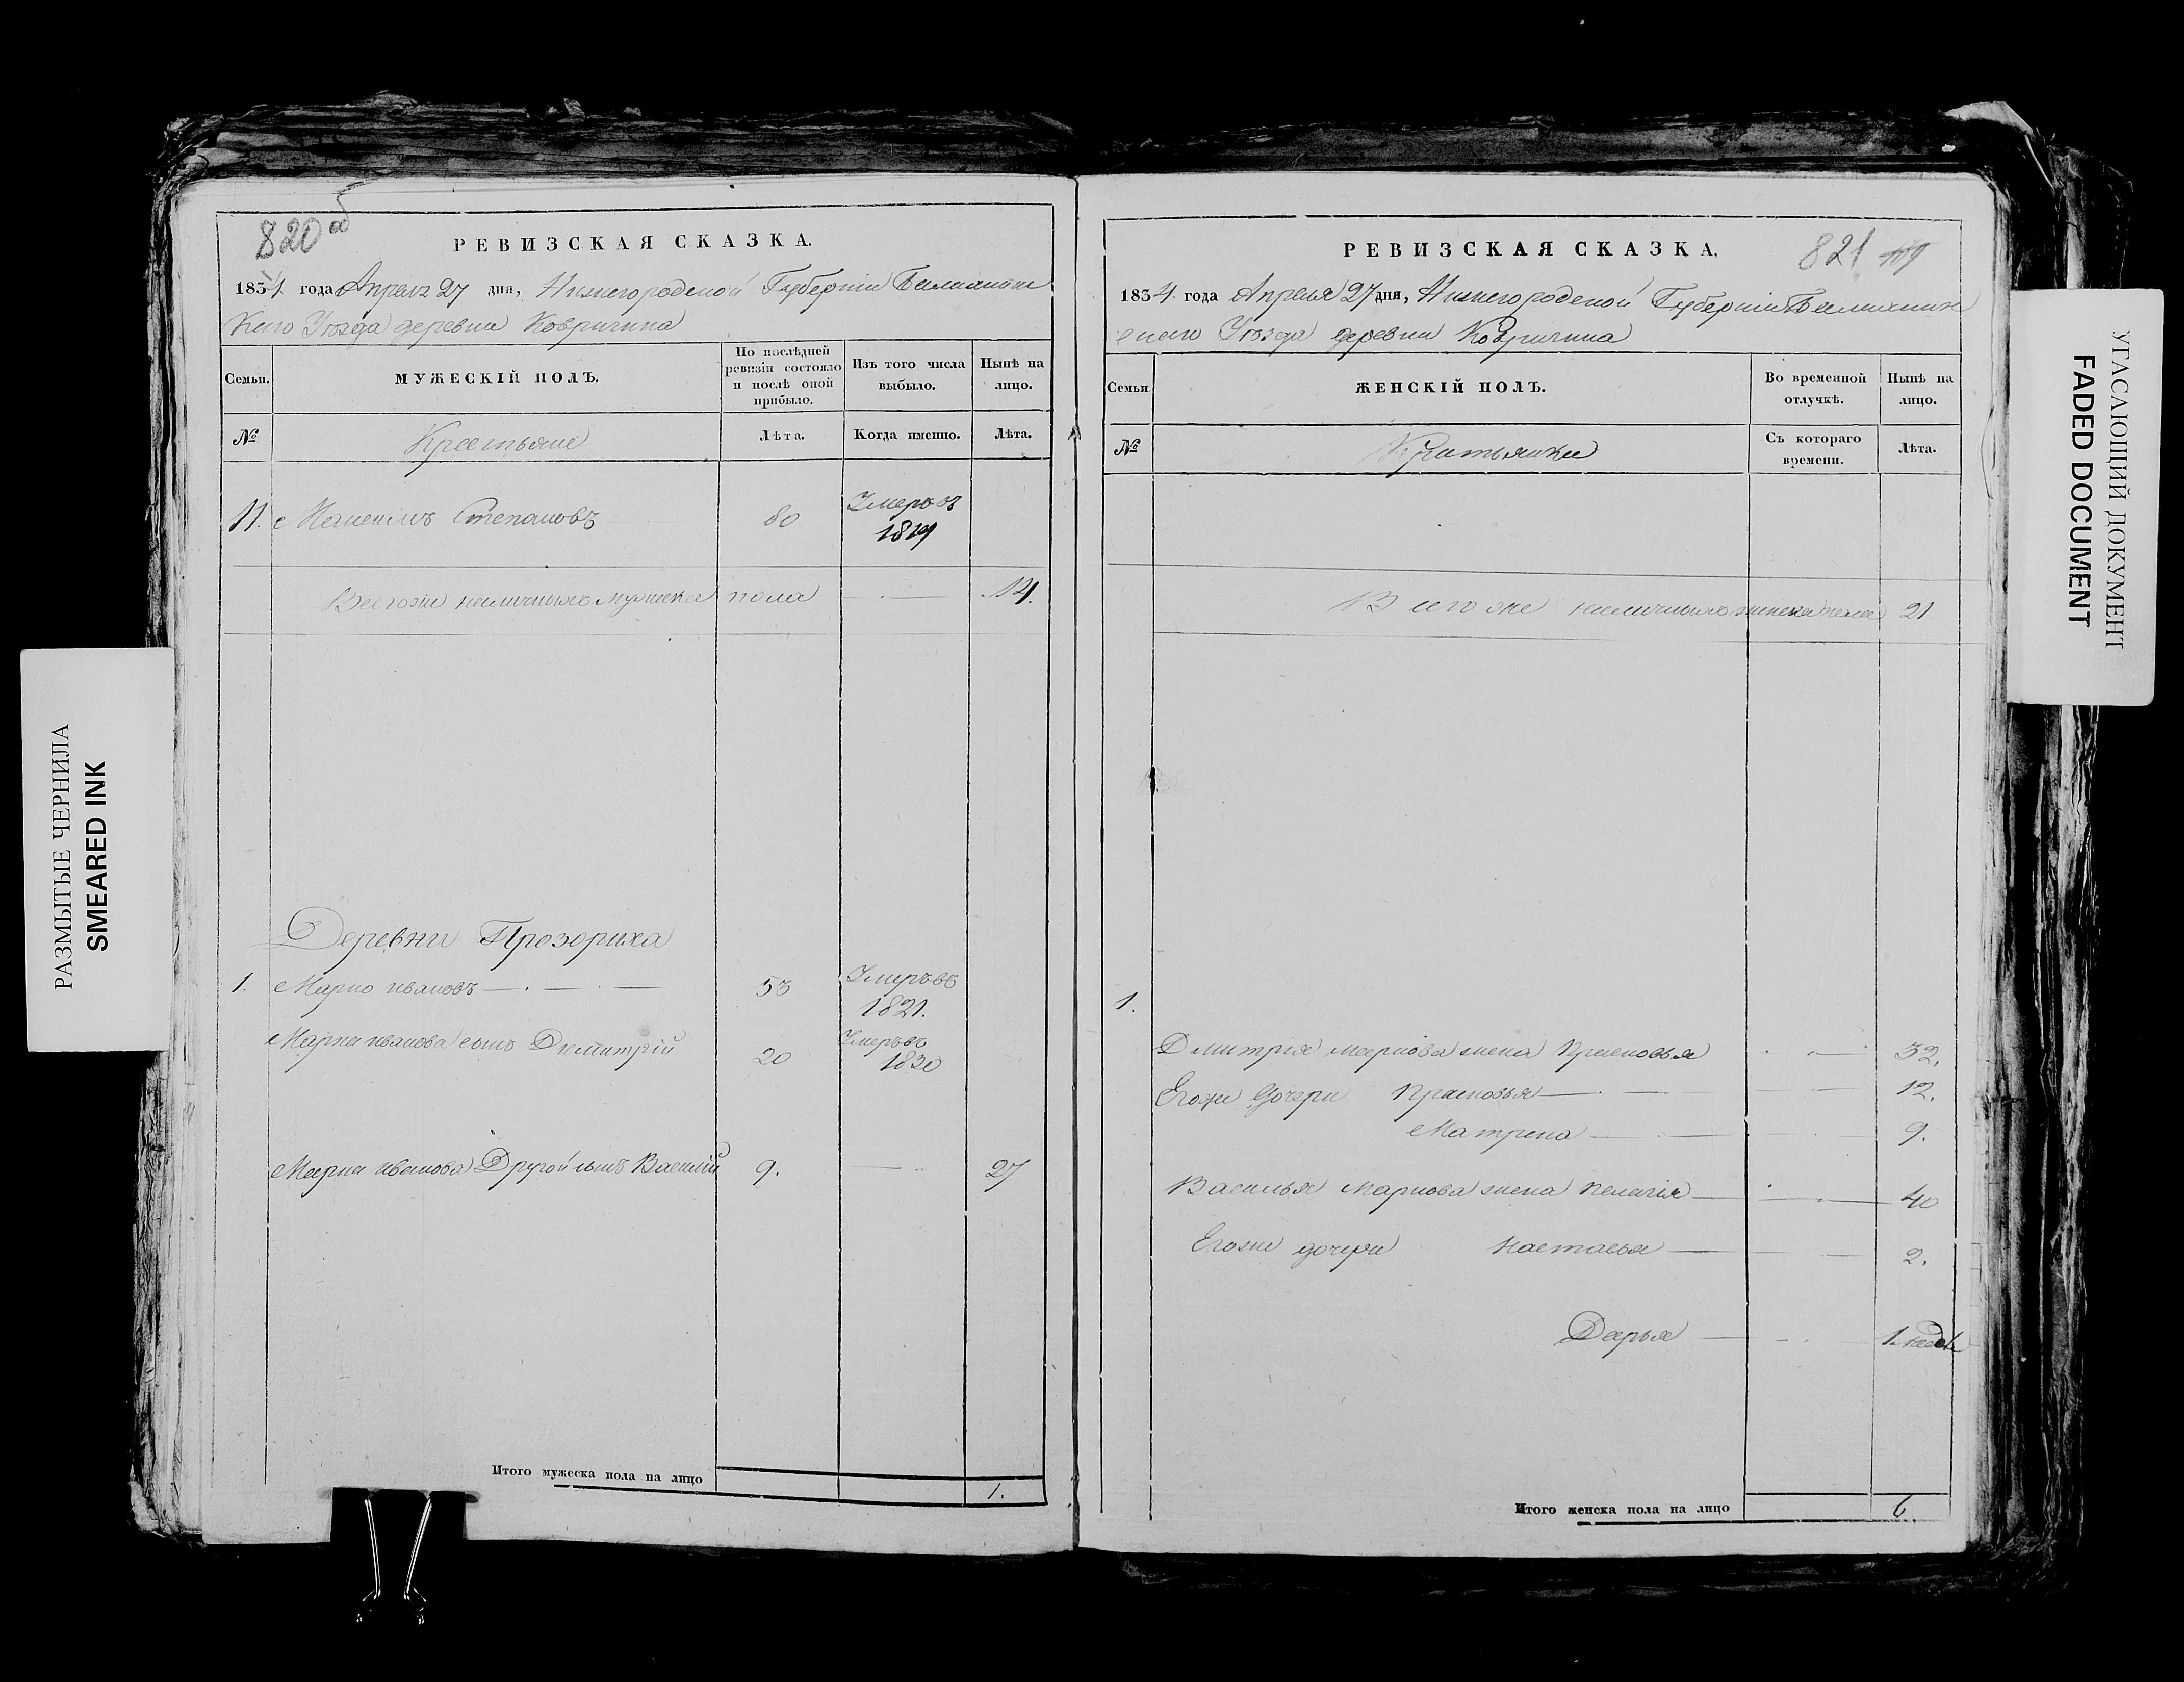 820 об
РЕВИЗСКАЯ СКАЗКА.
1834 года Апреля 27 дня, Нижегородской Губернiи Балахнинс
каго Уѣзда деревни Ковригина
Семьи.
МУЖЕСКІЙ ПОЛЪ.
По послѣдней ревизіи состояло и послѣ оной прибыло.
Изъ того числа выбыло.
Нынѣ на лицо.
№
Крестьяне
Лѣта.
Когда именно.
Лѣта.
11. Максимъ Степановъ 80 Умеръ въ
1819
Всегоже наличныхъ мужеска пола 14.
Деревни Прозориха
1. Марко ивановъ 53 Умеръ въ
1821.
Марки иванова сынъ Дмитрій 20 Умеръ въ
1830
Марки иванова Другой сынъ Василий 9. 27
Итого мужеска пола на лицо 1.
РЕВИЗСКАЯ СКАЗКА.
821
1834 года Апреля 27 дня, Нижегородской Губернiи Балахнин
скаго Уѣзда деревни Ковригина
Семьи
ЖЕНСКІЙ ПОЛЪ.
Во временной отлучкѣ.
Нынѣ на лицо.
№
Кретьянки
Съ котораго времени.
Лѣта.
Всегоже наличныхъ женска пола 21
1.
Дмитрія маркова жена Прасковья 32.
Егоже дочери Прасковья 12.
Матрена 9.
Василья маркова жена пелагія 40
Егоже дочери настасья 2.
Дарья 1. недел
Итого женска пола на лицо 6.
РАЗМЫТЫЕ ЧЕРНИЛА
SMEARED INK
УГАСАЮЩИЙ ДОКУМЕНТ
FADED DOCUMENT